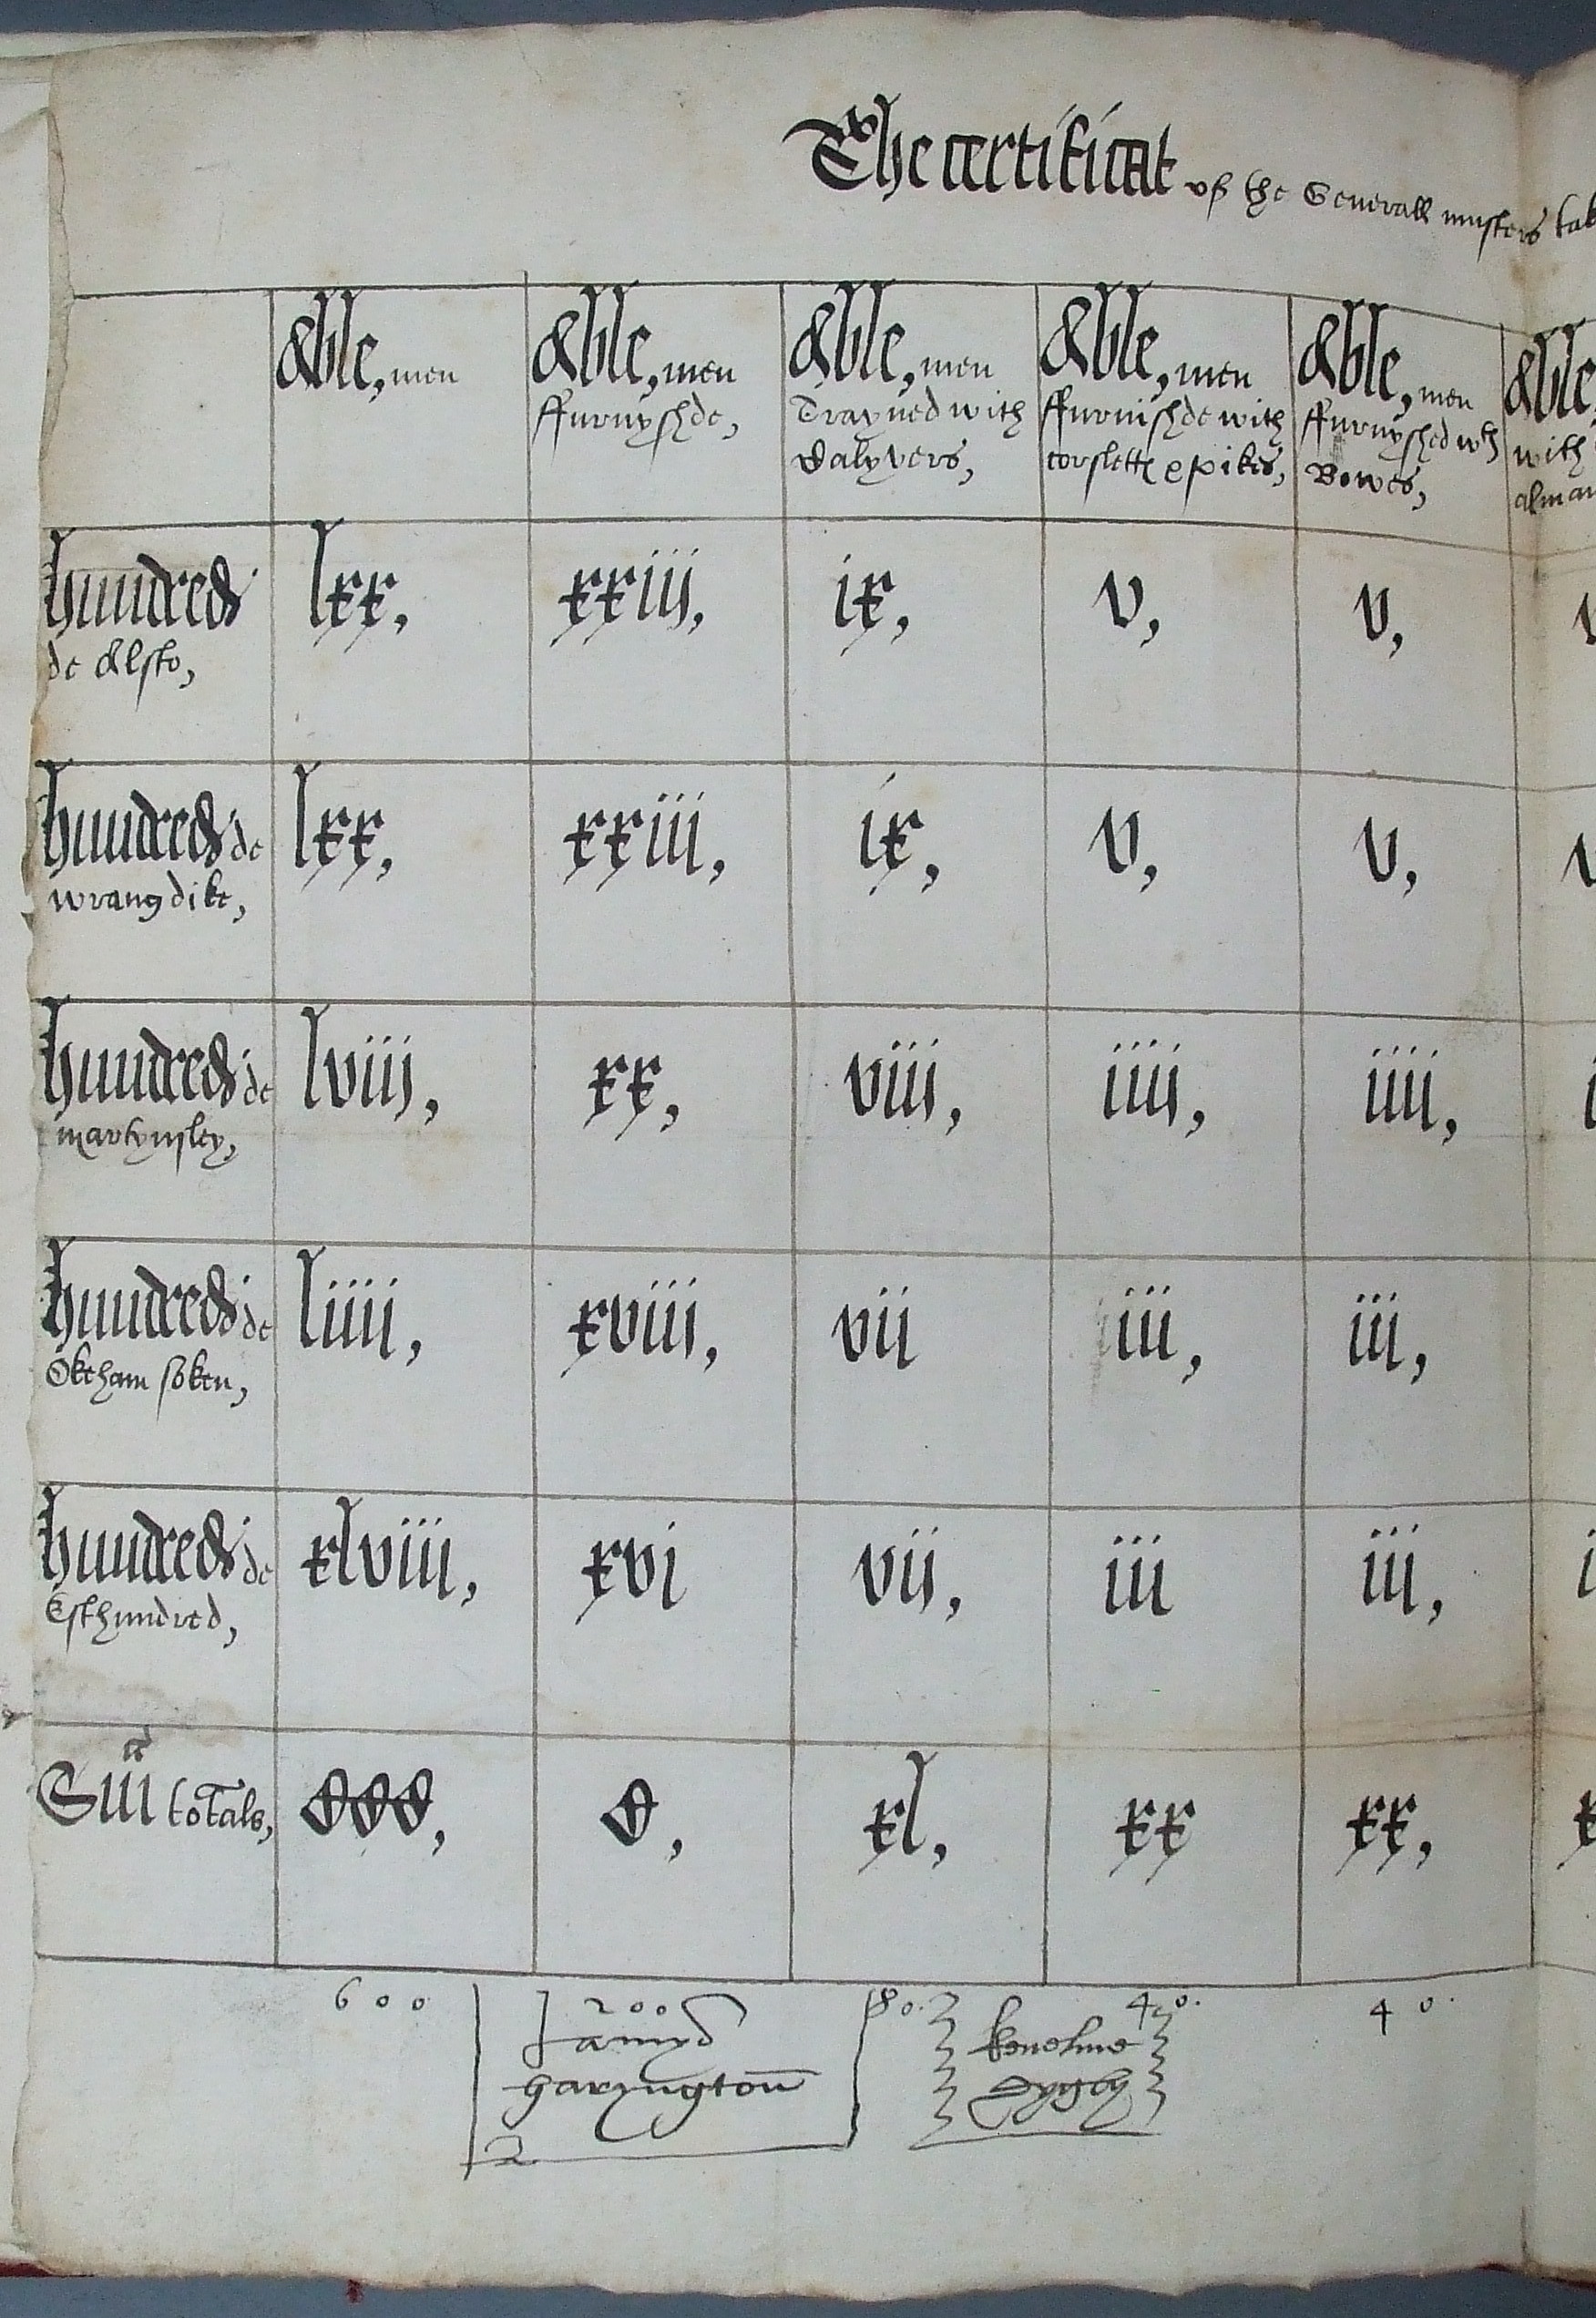 The certificat of the Generall musters tak
Able, men
Able, men
ffurnyshde,
Able, men
Trayned with
Calyvers,
Able, men
ffurnishde with
corslettes & pikes,
Able, men
ffurnyshed wth
Bowes,
Able,
with
alman
hundred
de Alsto,
lxx,
xxiij,
ix,
v,
v,
hundred de
wrangdike,
lxx,
xxiii,
ix,
v,
v,
hundred de
martynsley,
lviij,
xx,
viii,
iiii,
iiii,
hundred de
Okeham soken,
liiii,
xviii,
vii
iii,
iii,
hundred de
Esthundred,
xlviii,
xvi
vii,
iii
iii,
Sm totals,
CCC,
C,
xl,
xx
xx,
600
200
80.
40.
40.
Jamys
harington
kenelme
Dygby